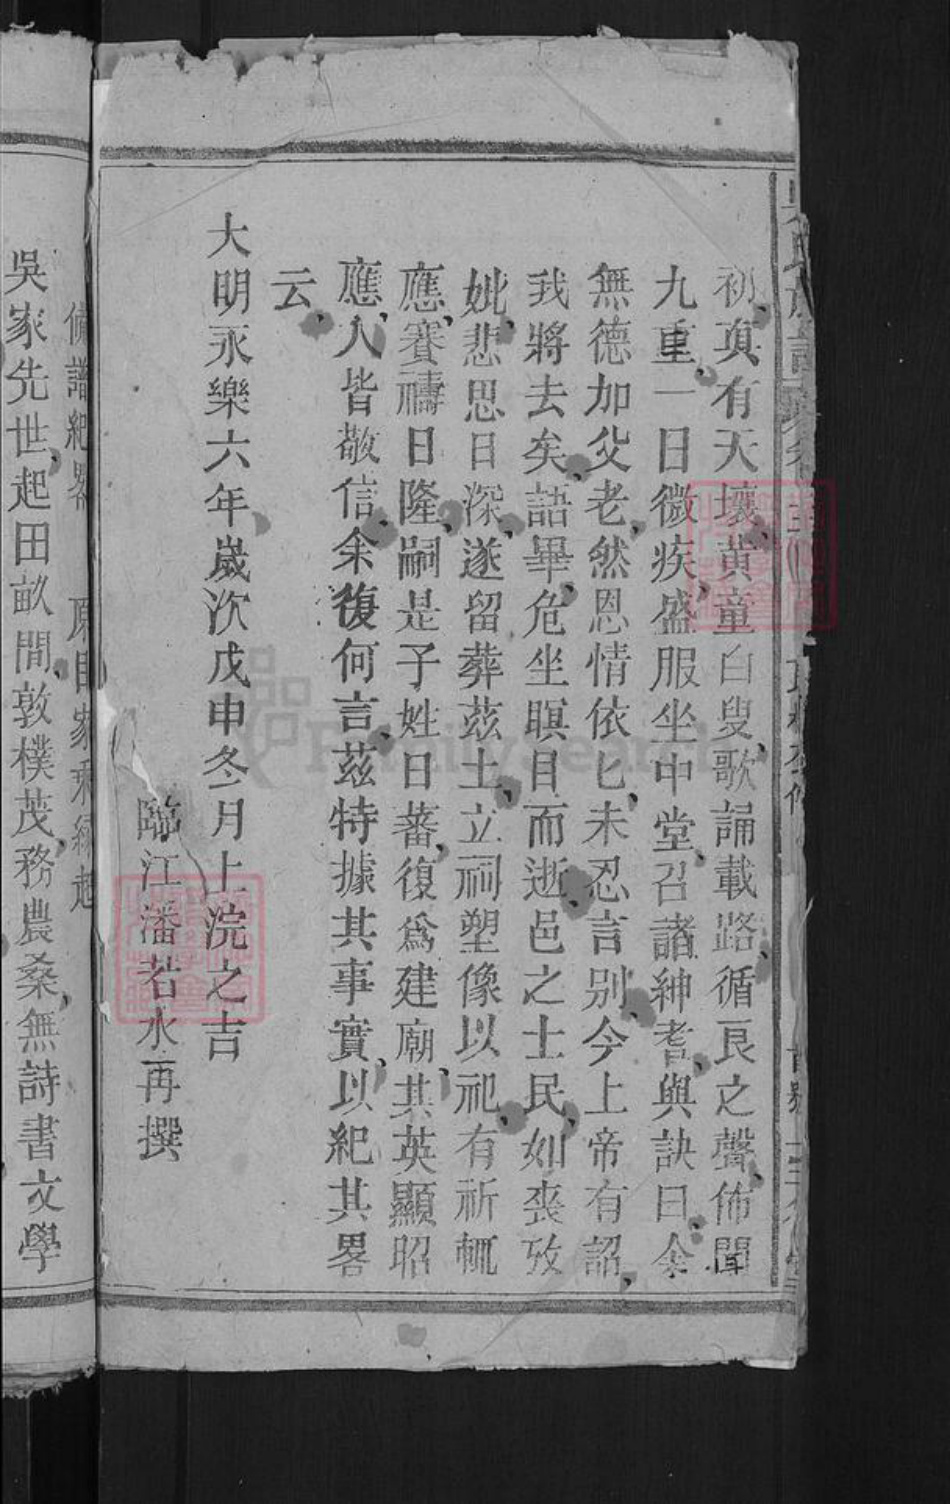 初真有天壤黄童白叟歌誦載路循良之聲佈聞
九重一日微疾盛服坐中堂召諸紳耆與訣曰余
無德加父老然恩情依匕未忍言别今上帝有詔
我將去矣語畢危坐瞑目而逝邑之士民如喪攷
妣悲思日深遂留葬兹土立祠塑像以祀有祈輒
應賽禱日隆嗣是子姓日蕃復爲建廟其英顯昭
應人皆敬信余復何言兹特據其事實以紀其畧
云
大明永樂六年歲次戊申冬月上浣之吉
臨江潘若水再撰
備譜紀畧
吳家先世起田畝間敦樸茂務農桑無詩書文學
FamilySearch